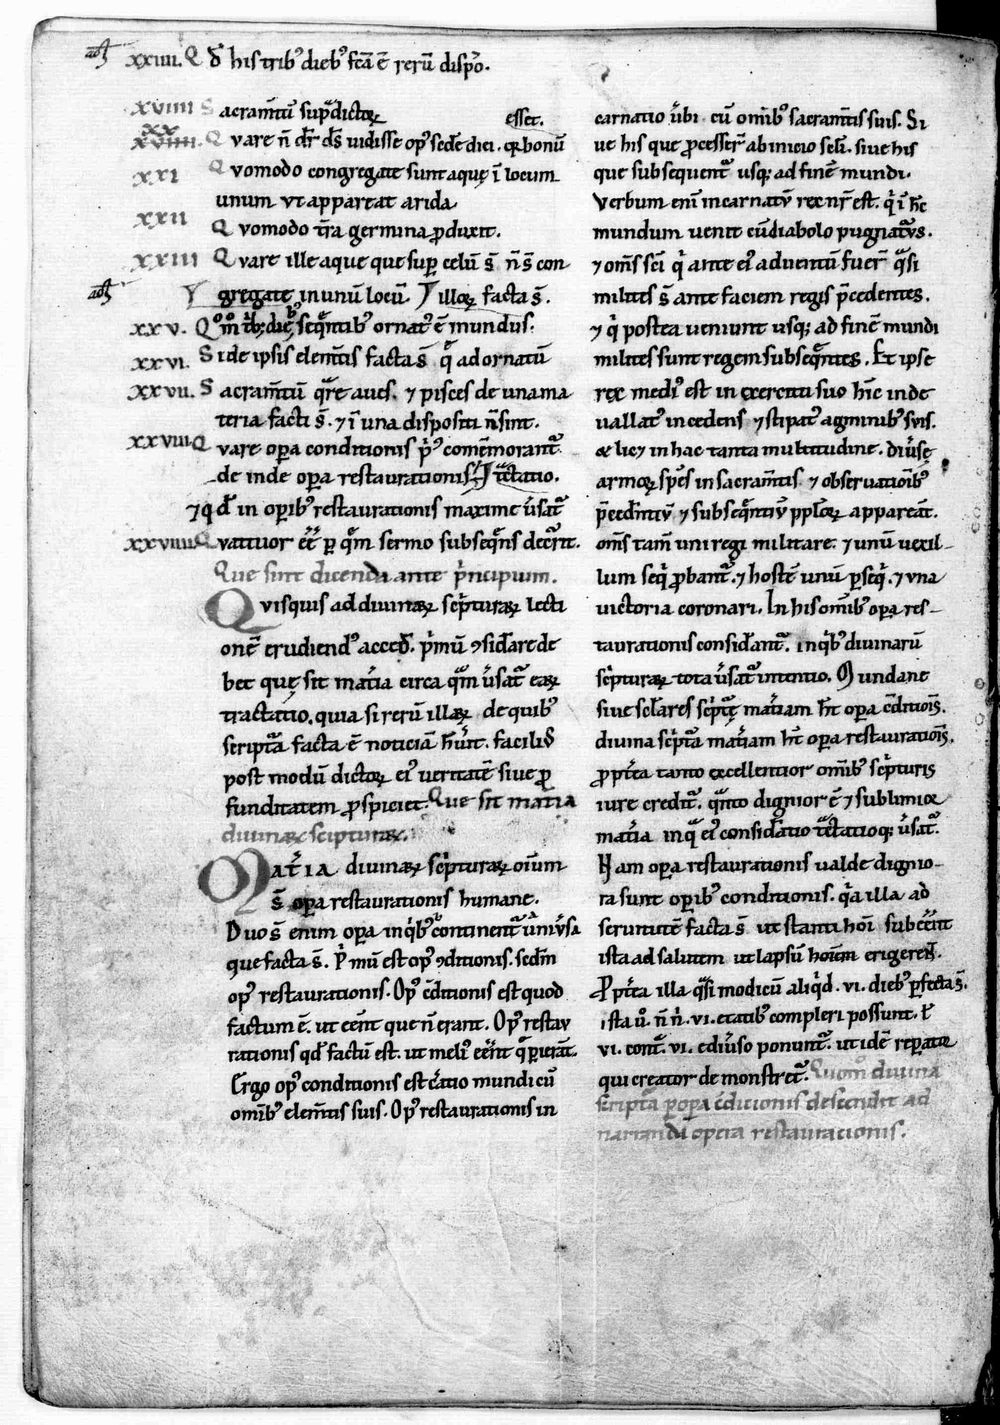 xxiiii. Qđ his trib᷒ dieb᷒ fc̄a ē rerū dispo᷒.
xviiii Sacram̄tū sup̄dictoꝝ
esset.
xx Qvare n̄ dr̄ ds̄ uidisse op᷒ sc̄de diei. qꝛ bonū
xxi Qvomodo congregate sunt aquę ī locum
unum vt appareat arida
xxii Qvomodo t̄ra germina ꝓduxit.
xxiii Qvare ille aque que suꝑ celū s̄ n̄ s̄ con
gregate in unū locū. ⁊ illoꝝ facta s̄.
xxv. Qom̄ trib᷒ dieb᷒ seqn̄tib᷒ ornat᷒ ē mundus.
xxvi. Si de ipsis elem̄tis facta s̄ q̄ ad ornatū
xxvii. Sacram̄tū qre aues. ⁊ pisces de una ma
teria facti s̄. ⁊ ī una dispositi n̄ sint.
xxviii Qvare oꝑa conditionis p᷒ com̄emorant᷑
de inde oꝑa restaurationis tctatio.
⁊ qđ in oꝑib᷒ restaurationis maxime u̓sat᷑
xxviiii Qvattuor eē ꝑ qm̄ sermo subseqn̄s decr̄it.
Que sint dicenda ante p̓ncipium.
Qvisquis ad diuinaꝝ sc̓pturaꝝ lecti
onē erudiend᷒ acceđ. p̓mū ꝯsiđare de
bet quę sit mat̓ia circa qm̄ u̓sat᷑ eaꝝ
tractatio. quia si rerū illaꝝ de quib᷒
scripta facta ē noticiā hu̓it. facili᷒
post modū dictoꝝ ei᷒ ueritatē siue ꝓ
funditatem ꝓspiciet. Que sit mat̓ia
diuinaꝝ scipturaꝝ.
Mat̓ia diuinaꝝ sc̓pturaꝝ oīum
s̄ oꝑa restaurationis humane.
Duo s̄ enim oꝑa in qib᷒ continent᷑ uniu̓sa
que facta s̄. P̓mū est op᷒ ꝯditionis. secđm
op᷒ restaurationis. Op᷒ c̄ditionis est quod
factum ē. ut eēnt que n̄ erant. Op᷒ restau
rationis qđ factū est. ut meli᷒ eēnt q̄ ꝑierāt.
Ergo op᷒ conditionis est c̓atio mundi cū
om̄ib᷒ elem̄tis suis. Op᷒ restaurationis in
carnatio u̓bi cū om̄ib᷒ sacram̄tis suis. Si
ue his que ꝓcesser̄ ab inicio sc̄li. siue his
que subsequent᷑ usq; ad finē mundi.
Verbum eni incarnatū rex nr̄ est. q̓ ī hc
mundum uenit cū diabolo pugnatur᷒.
⁊ oms̄ sc̄i q̓ ante ei᷒ aduentū fuer̄ qsi
milites s̄ ante faciem regis p̄cedentes.
⁊ q̓ postea ueniunt usq; ad finē mundi
milites sunt regem subseqn̄tes. Et ipse
rex medi᷒ est in exercitu suo hīc inde
uallat᷒ incedens ⁊ stipat᷒ agminib᷒ suis.
⁊ lic⁊ in hac tanta multitudine. diu̓se
armoꝝ spēs in sacram̄tis. ⁊ obseruatiōib᷒
p̄ceđntiū ⁊ subseqn̄tiū ppl̓oꝝ appareāt.
oms̄ tam̄ uni regi militare. ⁊ unū uexil-
lum seq̓ ꝓbant᷑. ⁊ hostē unū ꝑseq̓. ⁊ vna
uictoria coronari. In his om̄ib᷒ oꝑa res-
taurationis considant᷑. in qib᷒ diuinarū
sc̓pturaꝝ tota u̓sat᷑ intentio. Mundane
siue scl̄ares sc̓ptę mat̓iam hn̄t oꝑa c̄ditiois̄.
diuina sc̓pta mat̓iam hn̄t oꝑa restauratiois̄.
ꝓpt̓ea tanto excellentior om̄ib᷒ sc̓pturis
iure credit᷑. qnto dignior ē ⁊ sublimior
mat̓ia in q̄ ei᷒ considatio tctatioq; u̓sat᷑.
Nam oꝑa restaurationis ualde dignio-
ra sunt oꝑib᷒ conditionis. q̄a illa ad
seruitutē facta s̄ ut stanti hoī subeēnt
ista ad salutem ut lapsū hoīem erigerēt.
Ppt̓ea illa qsi modicū aliq̓d. vi. dieb᷒ ꝑfecta s̄.
ista u̓. n̄ n̓. vi. etatib᷒ compleri possunt. t̄
vi. cont᷑. vi. ediu̓so ponunt᷑. ut idē reꝑator
qui creator de monstret᷑. Quom̄ diuina
scripta ꝑ oꝑa c̄ditionis descendit ad
narranda opera restaurationis.